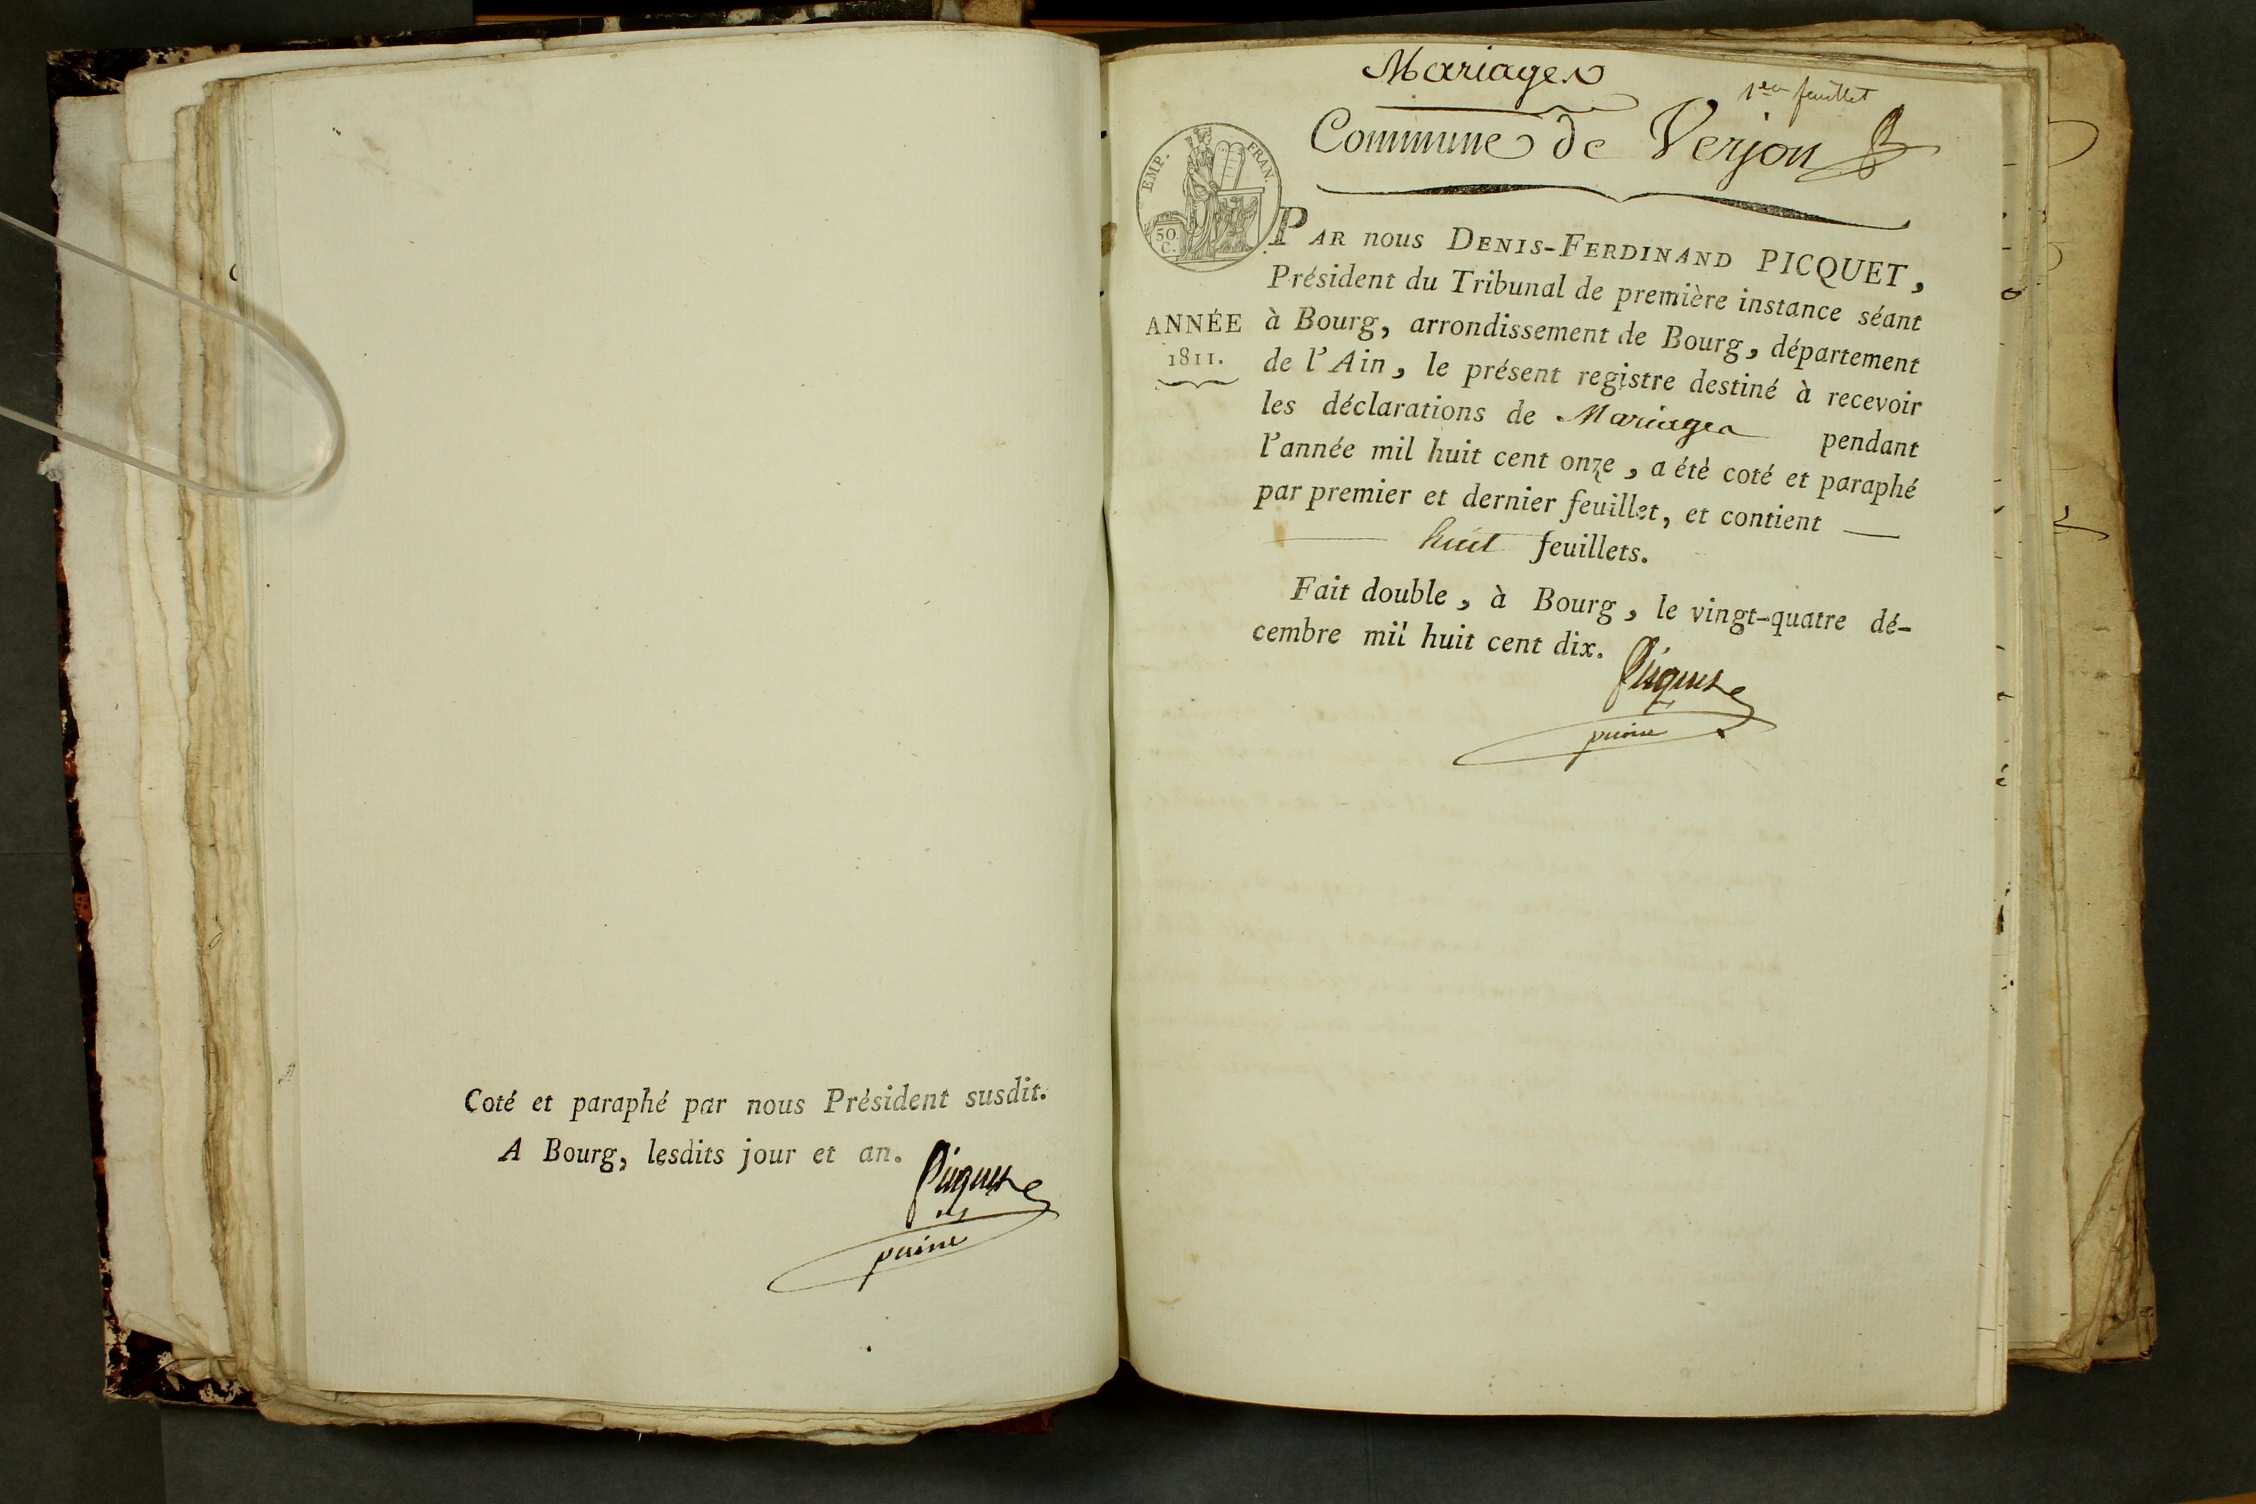 Coté et paraphé par nous Président susdit.
A Bourg, lesdits jour et an.
Picquet
Mariages
1er feuillet
Commune de Verjon
EMP. FRAN.
50.
C.
ANNÉE
1811.
PAR nous DENIS-FERDINAND PICQUET,
Président du Tribunal de première instance séant
à Bourg, arrondissement de Bourg, département
de l'Ain, le présent registre destiné à recevoir
les déclarations de Mariages pendant
l'année mil huit cent onze, a été coté et paraphé
par premier et dernier feuillet, et contient —
— huit feuillets.
Fait double, à Bourg, le vingt-quatre dé-
cembre mil huit cent dix.
Picquet